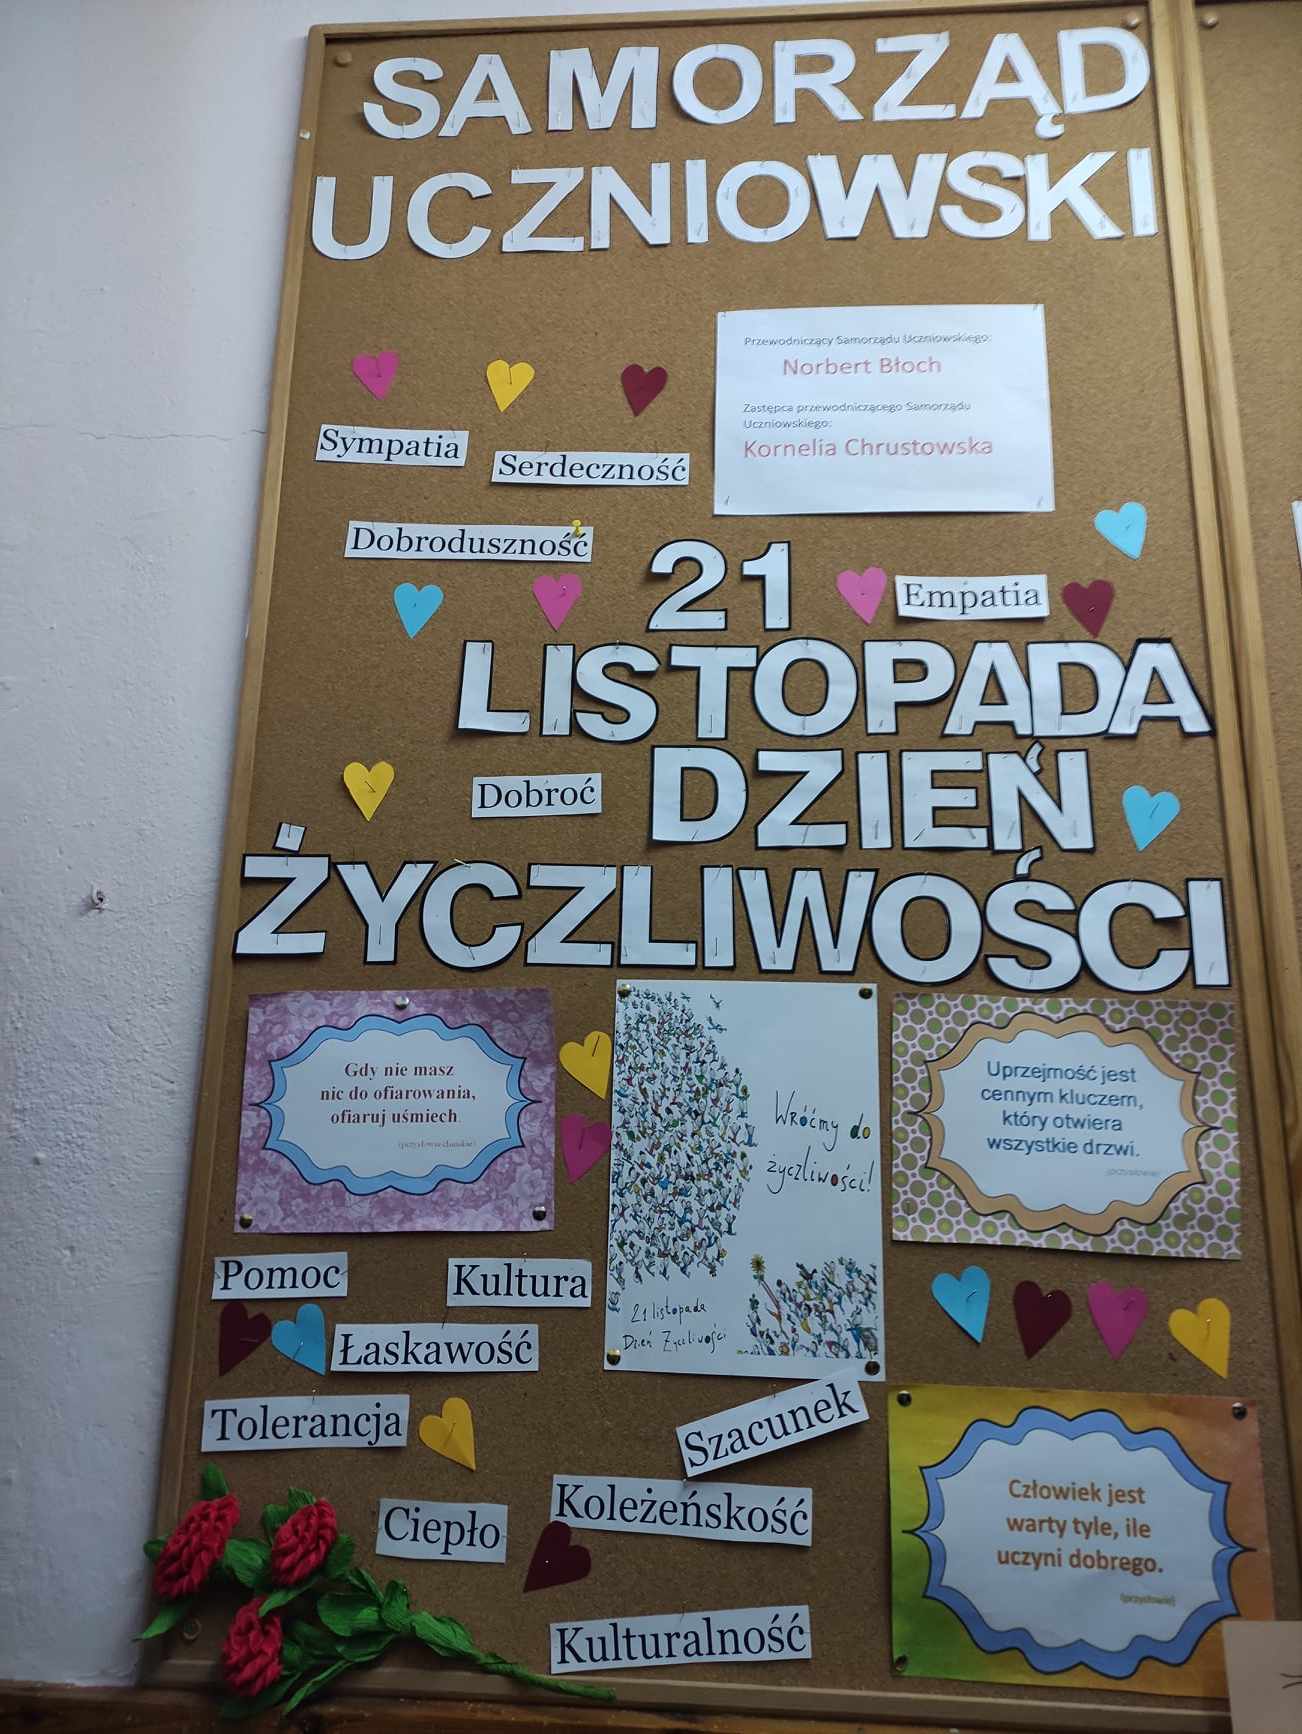 SAMORZĄD
UCZNIOWSKI
Przewodniczący Samorządu Uczniowskiego:
Norbert Błoch
Zastępca przewodniczącego Samorządu
Uczniowskiego:
Kornelia Chrustowska
Sympatia
Serdeczność
Dobroduszność
Empatia
21
LISTOPADA
DZIEŃ
ŻYCZLIWOŚCI
Dobroć
Gdy nie masz
nic do ofiarowania,
ofiaruj uśmiech.
(przysłowie chińskie)
Wróćmy do
życzliwości!
21 listopada
Dzień Życzliwości
Uprzejmość jest
cennym kluczem,
który otwiera
wszystkie drzwi.
(przysłowie)
Pomoc
Kultura
Łaskawość
Tolerancja
Szacunek
Ciepło
Koleżeńskość
Kulturalność
Człowiek jest
warty tyle, ile
uczyni dobrego.
(przysłowie)